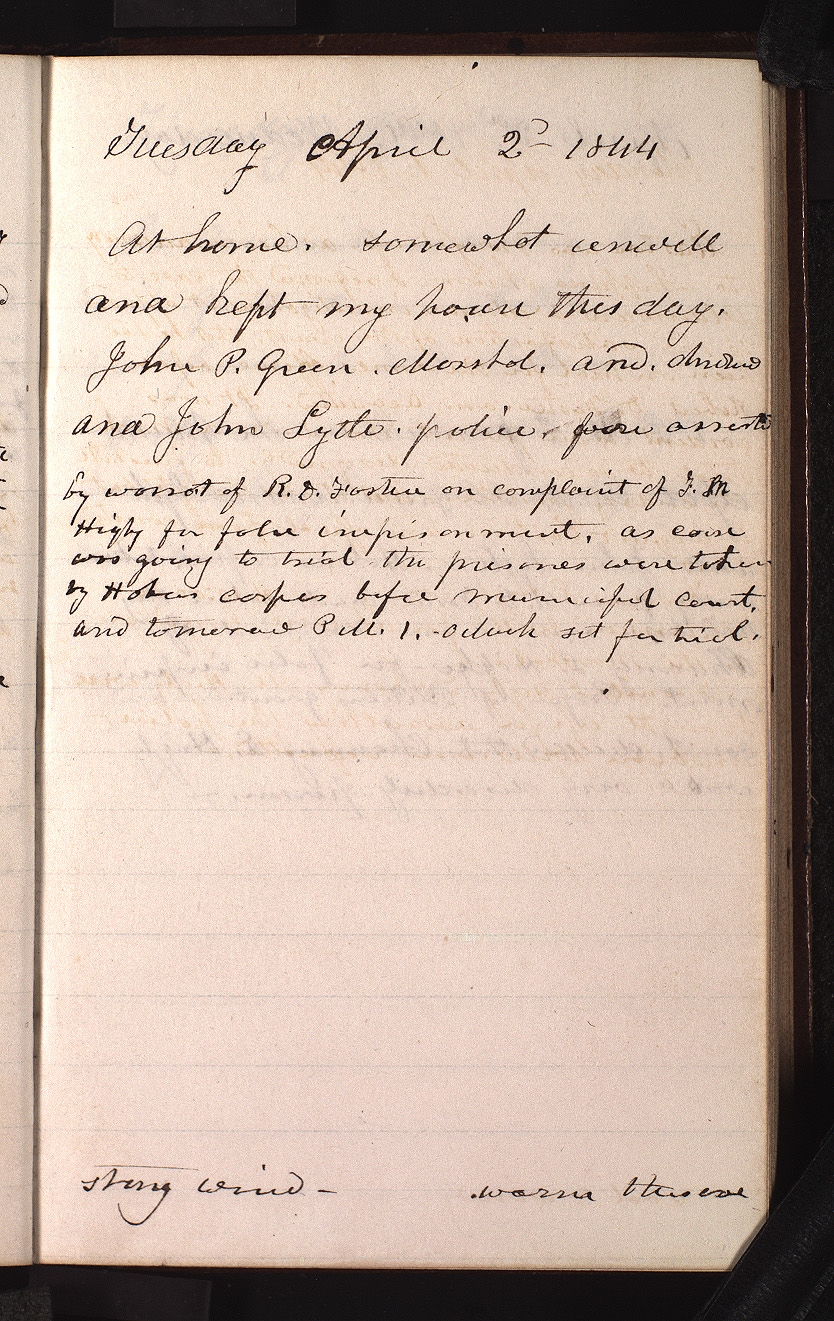 Tuesday April 2d 1844
At home. somewhat unwell
and kept my house this day.
John P. Green. Marshal. and. Andrew
and John Lytle. police. were arrested
by warrat of R. D. Foster on complaint of F. M
Higby for false imprisonment. as case
was going to trial the prisones were taken
by Habeus corpes befoe municipal court.
and tomorow P.M. 1. oclock set for trial.
strong wind - warm this eve